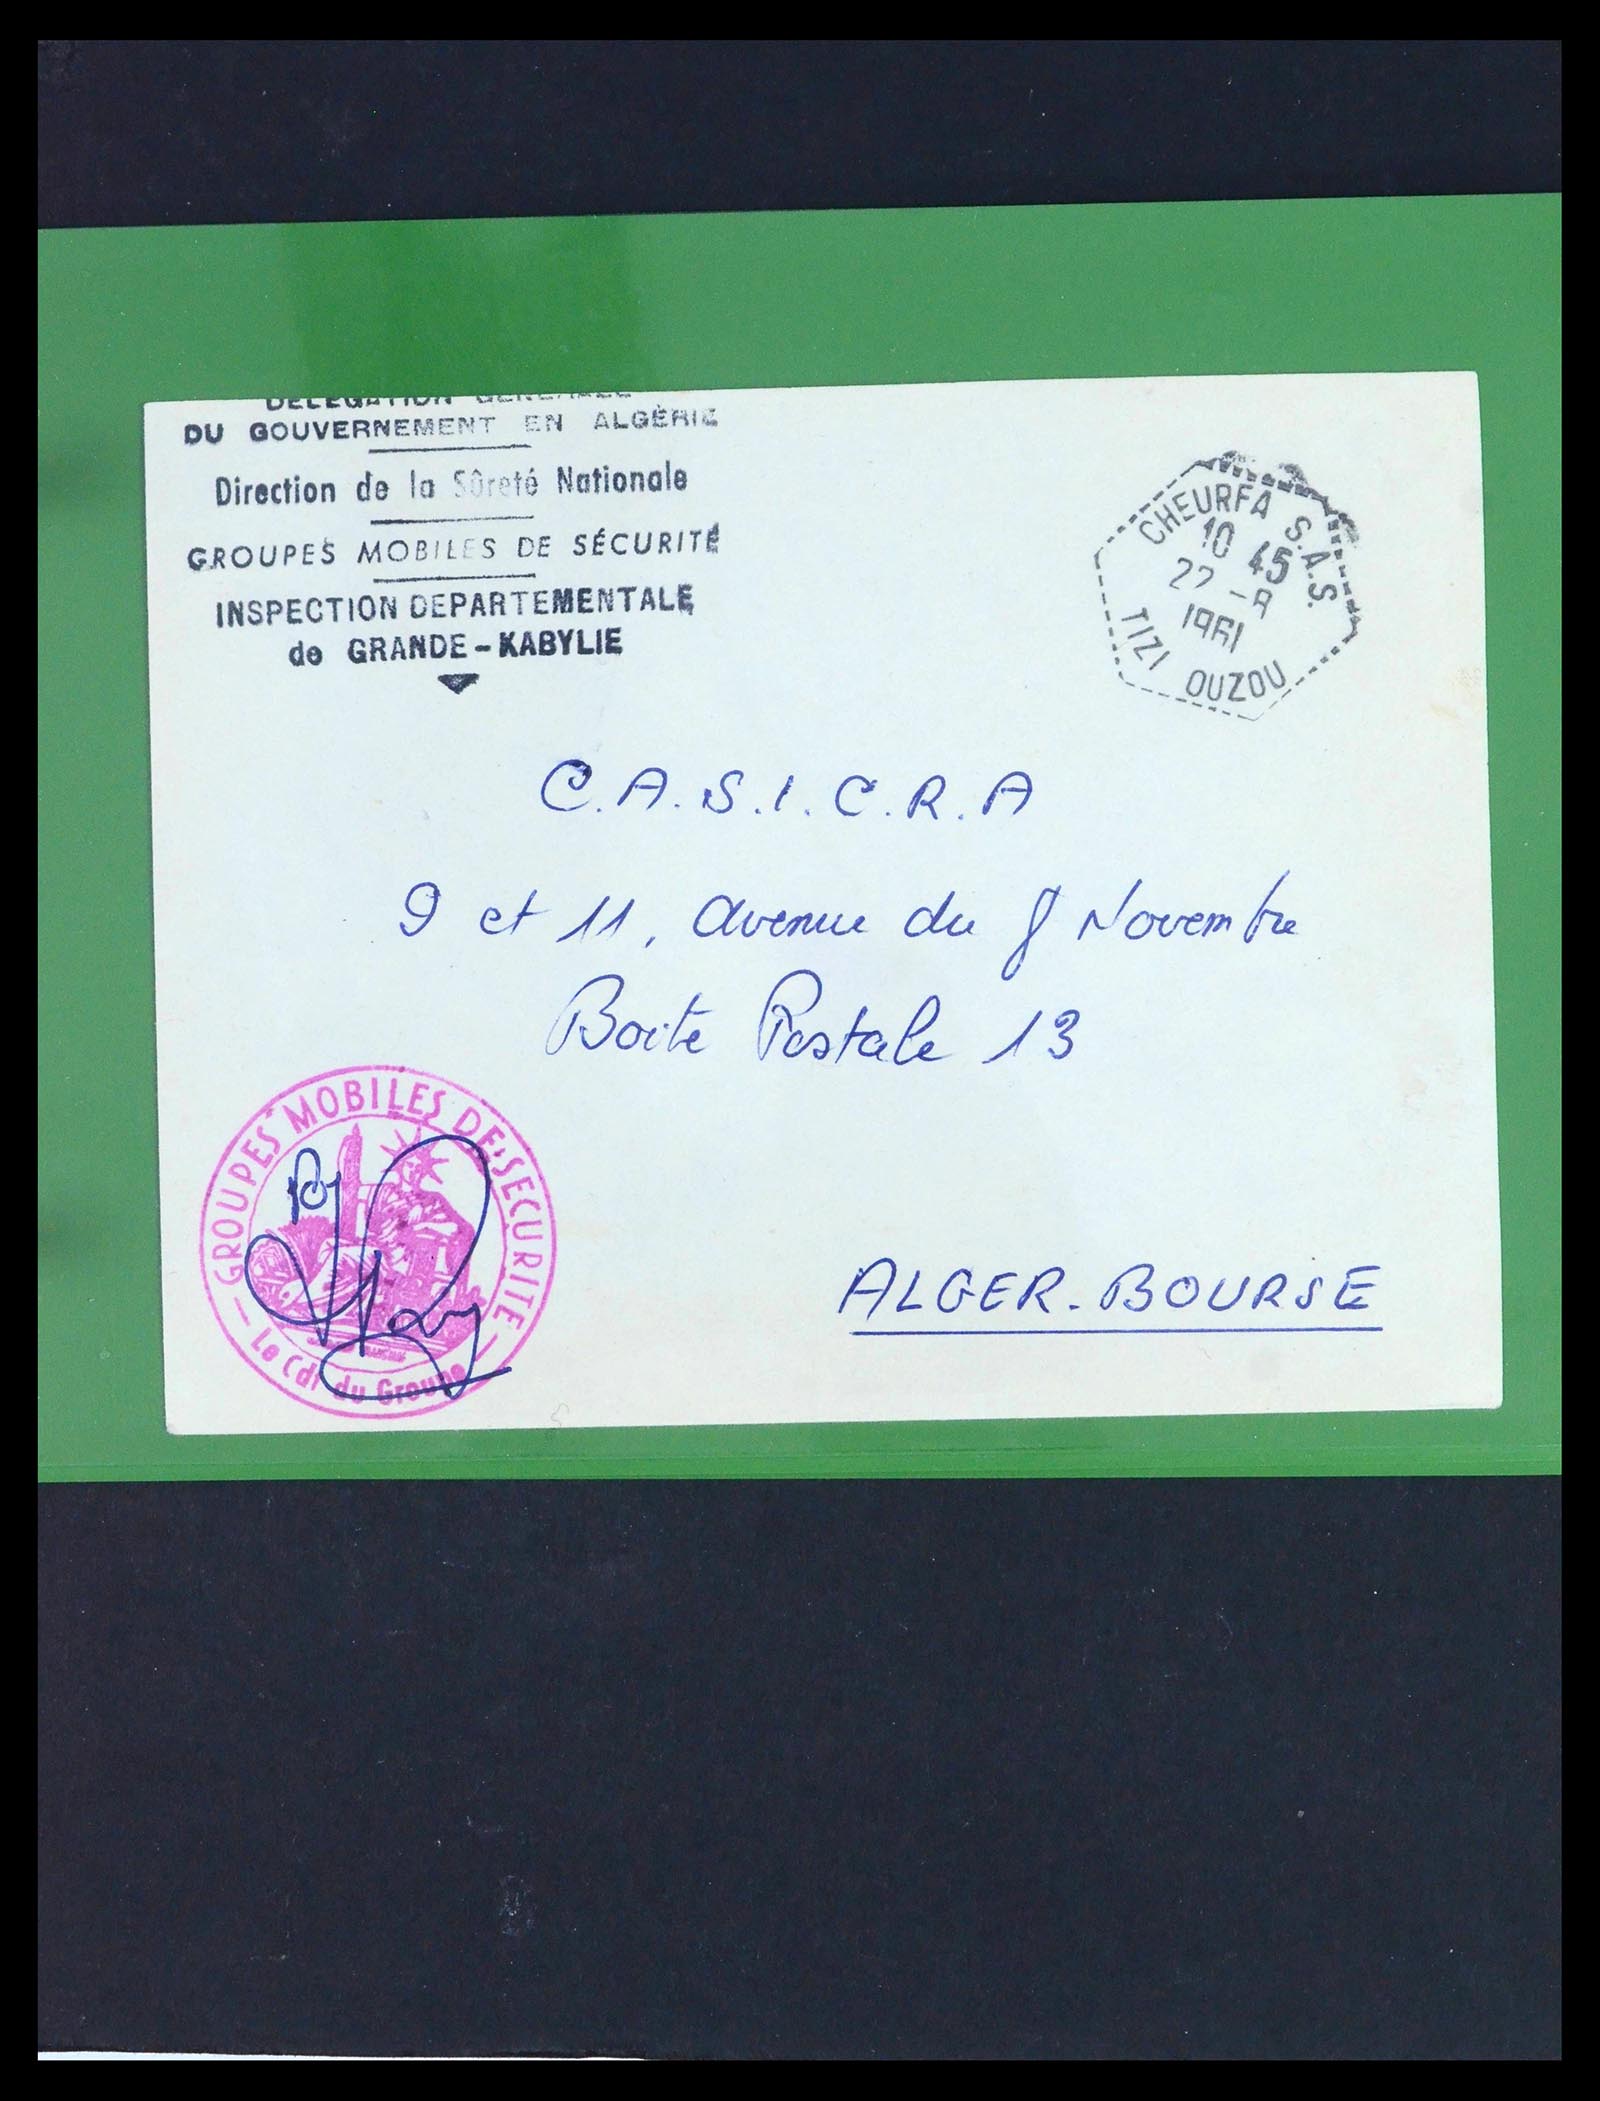 DÉLÉGATION GÉNÉRALE
DU GOUVERNEMENT EN ALGÉRIE
Direction de la Sûreté Nationale
GROUPES MOBILES DE SÉCURITÉ
INSPECTION DEPARTEMENTALE
de GRANDE-KABYLIE
CHEURFA S.A.S.
10 45
22 -8
1961
TIZI OUZOU
C.A.S.I.C.R.A
9 et 11, avenue du 8 Novembre
Boite Postale 13
ALGER-BOURSE
GROUPES MOBILES DE SECURITE
Le Cdt du Groupe